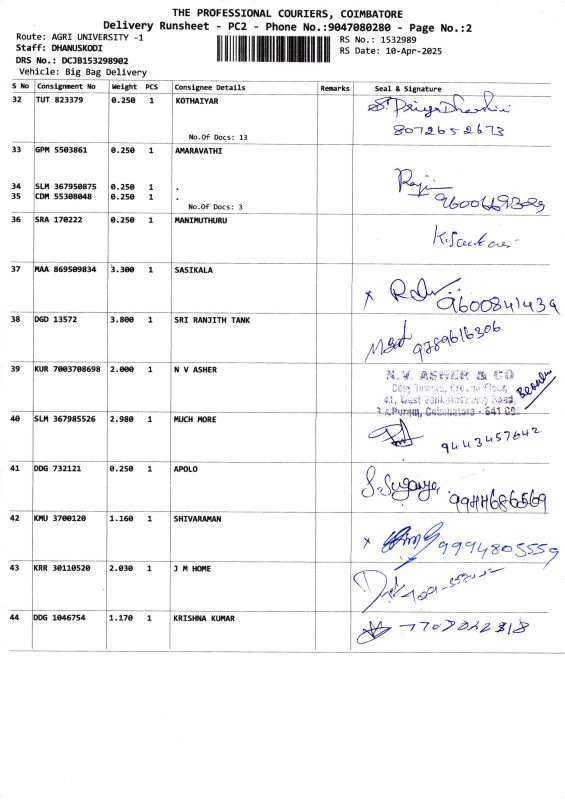 THE PROFESSIONAL COURIERS, COIMBATORE
Delivery Runsheet - PC2 - Phone No.:9047080280 - Page No.:2
Route: AGRI UNIVERSITY -1
RS No.: 1532989
Staff: DHANUSKODI
RS Date: 10-Apr-2025
DRS No.: DCJB153298902
Vehicle: Big Bag Delivery
S No Consignment No Weight PCS Consignee Details Remarks Seal & Signature
32 TUT 823379 0.250 1 KOTHAIYAR S. Priya Dharshini
8072652673
No.Of Docs: 13
33 GPM 5503861 0.250 1 AMARAVATHI
34 SLM 367950875 0.250 1 . Raji
35 CDM 55308048 0.250 1 .
No.Of Docs: 3
36 SRA 170222 0.250 1 MANIMUTHURU
37 MAA 869509834 3.300 1 SASIKALA
x 9600841439
38 DGD 13572 3.800 1 SRI RANJITH TANK
9789616306
39 KUR 7003708698 2.000 1 N V ASHER N.V. ASHER & CO
Cosy Towers, Ground Floor,
41, West Venkataswamy Road,
R.S.Puram, Coimbatore - 641 00
40 SLM 367985526 2.980 1 MUCH MORE
9443457642
41 DDG 732121 0.250 1 APOLO S. Suganya
9944686569
42 KMU 3700120 1.160 1 SHIVARAMAN
x 9994805559
43 KRR 30110520 2.030 1 J M HOME
44 DDG 1046754 1.170 1 KRISHNA KUMAR